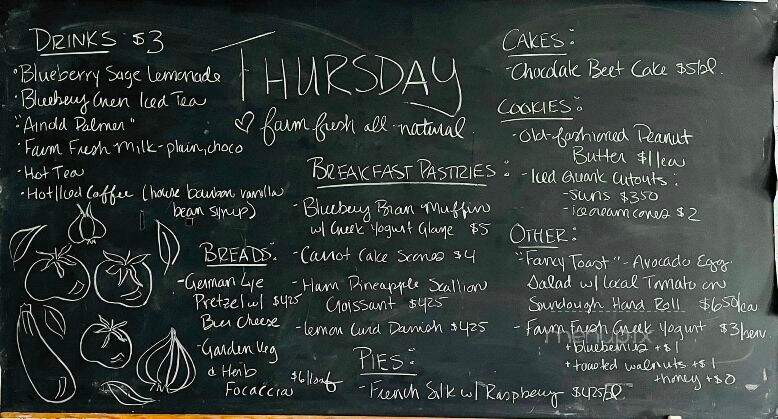 DRINKS $3
• Blueberry Sage Lemonade
• Blueberry Green Iced Tea
• "Arnold Palmer"
• Farm Fresh Milk - plain, choco
• Hot Tea
• Hot/Iced Coffee (house bourbon vanilla
bean syrup)
THURSDAY
♡ farm fresh all-natural
BREADS:
- German Lye
Pretzel w/ $4.25
Beer Cheese
- Garden Veg
& Herb
Focaccia $6/loaf
BREAKFAST PASTRIES:
- Blueberry Bran Muffin
w/ Greek Yogurt Glaze $5
- Carrot Cake Scones $4
- Ham Pineapple Scallion
Croissant $4.25
- Lemon Curd Danish $4.25
PIES:
- French Silk w/ Raspberry $4.25/sl.
CAKES:
- Chocolate Beet Cake $5/sl.
COOKIES:
- Old-fashioned Peanut
Butter $1/ea
- Iced Cutouts:
- suns $3.50
- ice cream cones $2
OTHER:
- "Fancy Toast" - Avocado Egg
Salad w/ Local Tomato on
Sourdough Hard Roll $6.50/ea
- Farm Fresh Greek Yogurt $3/serv.
+ blueberries + $1
+ toasted walnuts + $1
+ honey + $0
menupix